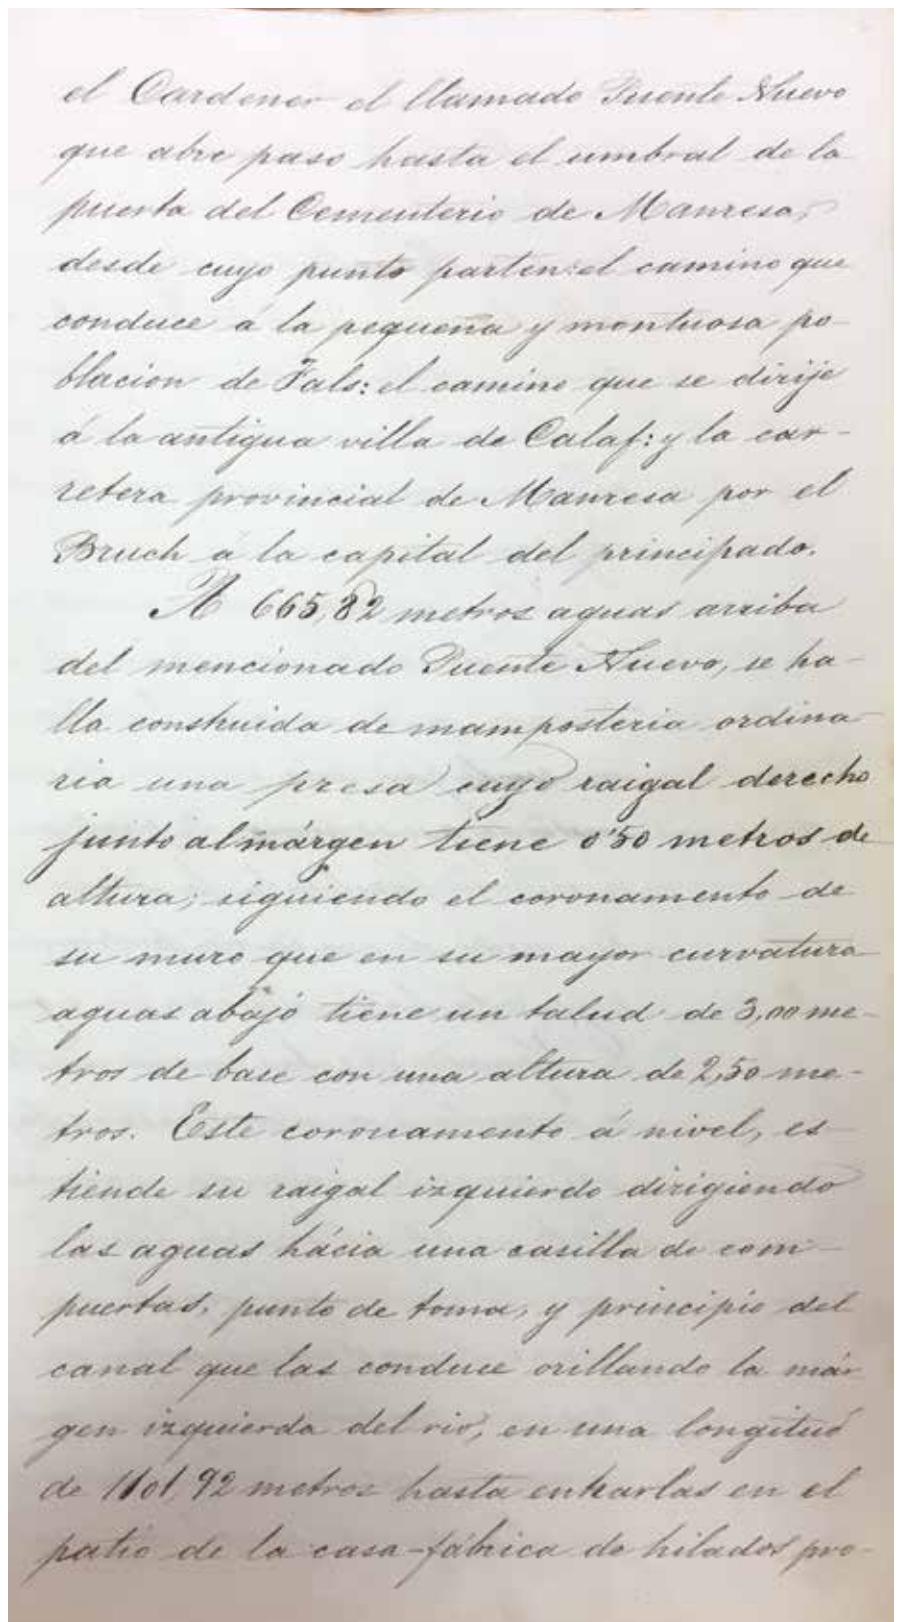 el Cardener el llamado Puente Nuevo
que abre paso hasta el umbral de la
puerta del Cementerio de Manresa,
desde cuyo punto parten: el camino que
conduce á la pequeña y montuosa po-
blacion de Fals: el camino que se dirije
á la antigua villa de Calaf: y la car-
retera provincial de Manresa por el
Bruch a la capital del principado.
A 665,82 metros aguas arriba
del mencionado Puente Nuevo, se ha-
lla construida de mamposteria ordina-
ria una presa cuyo raigal derecho
junto al márgen tiene 0'50 metros de
altura; siguiendo el coronamento de
su muro que en su mayor curvatura
aguas abajo tiene un talud de 3,00 me-
tros de base con una altura de 2,50 me-
tros. Este coronamento á nivel, es
tiende su raigal izquierdo dirigiendo
las aguas hácia una casilla de com-
puertas, punto de toma, y principio del
canal que las conduce orillando la már
gen izquierda del rio, en una longitud
de 1101,92 metros hasta entrarlas en el
patio de la casa-fábrica de hilados pro-